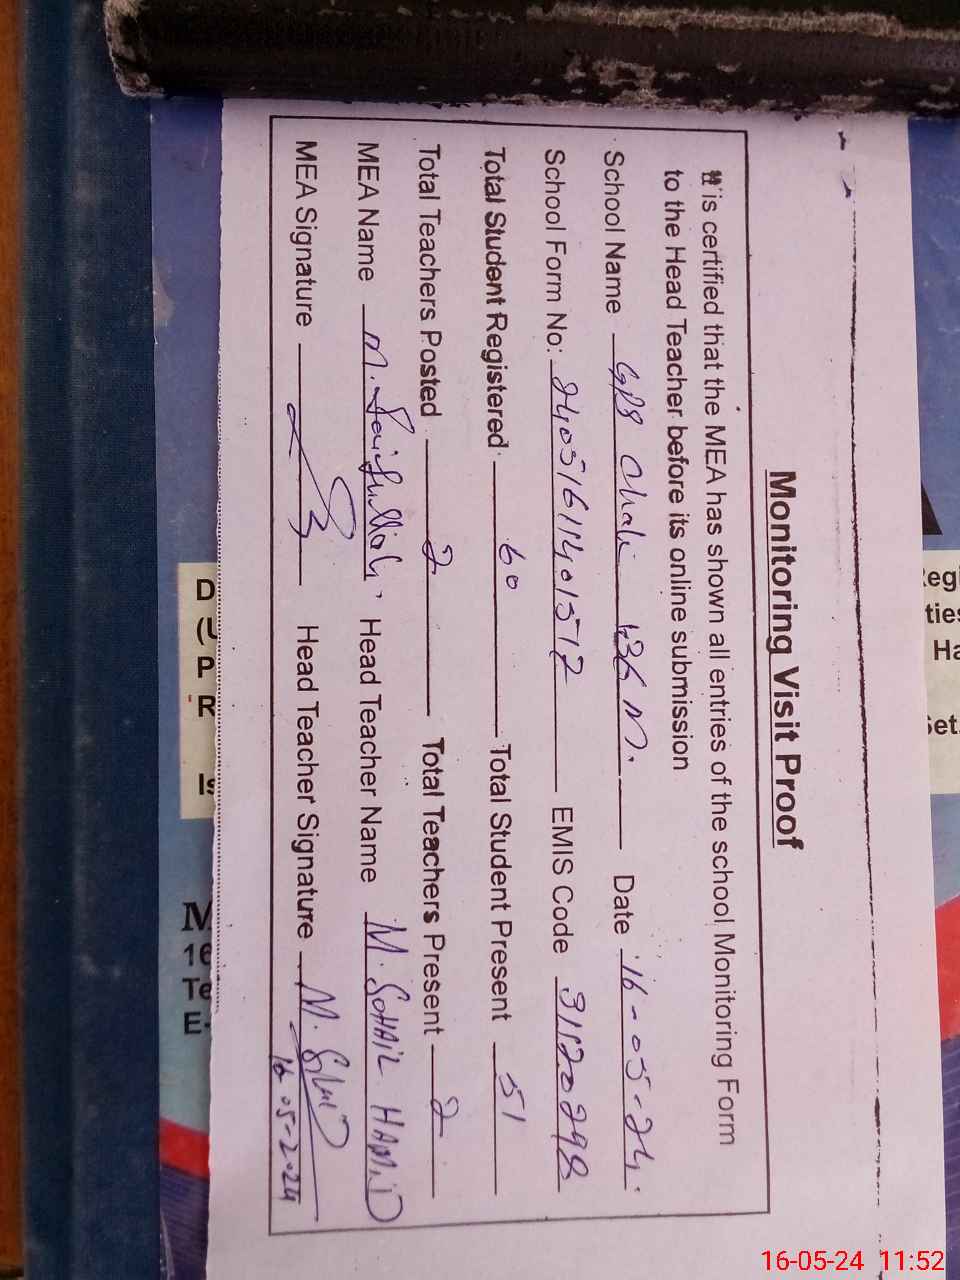 Monitoring Visit Proof
It is certified that the MEA has shown all entries of the school Monitoring Form
to the Head Teacher before its online submission
School Name GPS Chak 136 M. Date 16-05-24.
School Form No: EMIS Code 31120298
Total Student Registered 60 Total Student Present 51
Total Teachers Posted 2 Total Teachers Present 2
MEA Name M. Saifullah, Head Teacher Name M. SOHAIL HAMID
MEA Signature Head Teacher Signature
16-05-2024
D
P.
R
Is
M
16
Te
E-
Regi
ties
Ha
Set.
16-05-24 11:52